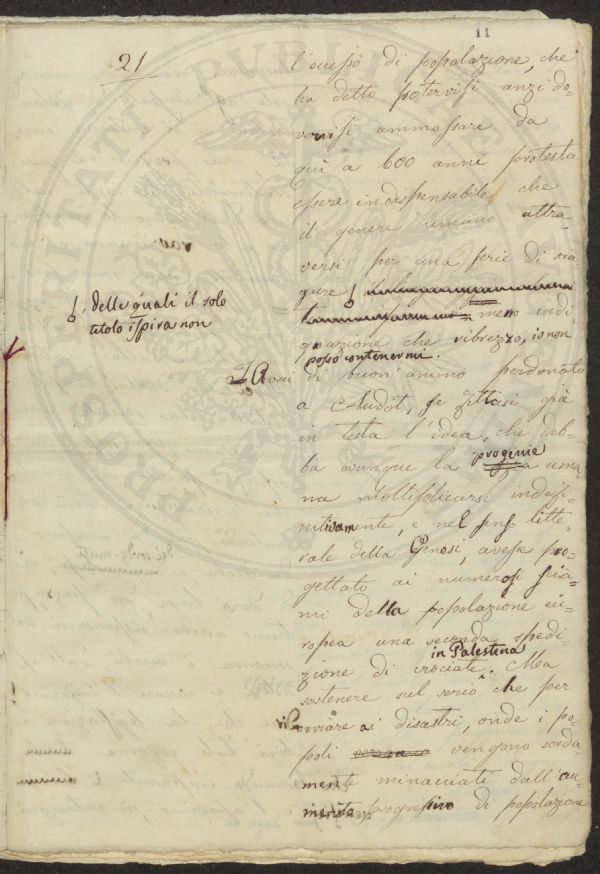 21
11
l'eccesso di popolazione, che
ha detto potervisi anzi do=
vervisi ammassare da
quì a 600 anni protesta
essere indispensabile che
il genere umano attra=
versi per una serie di scia=
gure
delle quali il solo
titolo ispira non
meno indi
gnazione che ribrezzo, io non
posso contenermi.
Avrei di buon' animo perdonato
a Audot, se fittasi già
in testa l'idea, che deb=
ba ovunque la progenie uma
na moltiplicarsi indefi=
nitivamente, e nel senso litte=
rale della Genesi, avesse pro=
gettato ai numerosi scia=
mi della popolazione eu=
ropea una seconda spedi=
zione di crociate in Palestina. Ma
sostenere sul serio che per
ovviare ai disastri, onde i po=
poli vengono soda
mente minacciati dall'au=
mento progressivo di popolazione
PROSPERITATI PUBLICAE